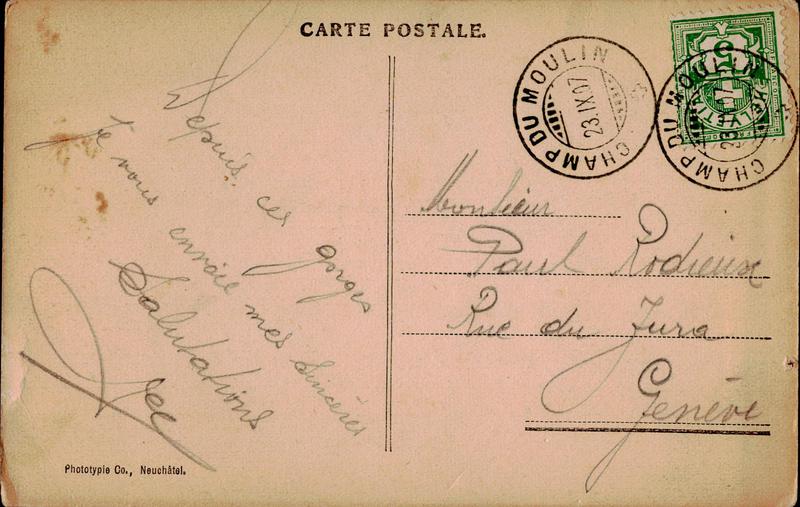 CARTE POSTALE.
Depuis ces gorges
je vous envoie mes sincères
Salutations
CHAMP DU MOULIN
23.IX.07
CHAMP DU MOULIN
HELVETIA
5
Monsieur
Paul Rodieux
Rue du Jura
Genève
Phototypie Co., Neuchâtel.